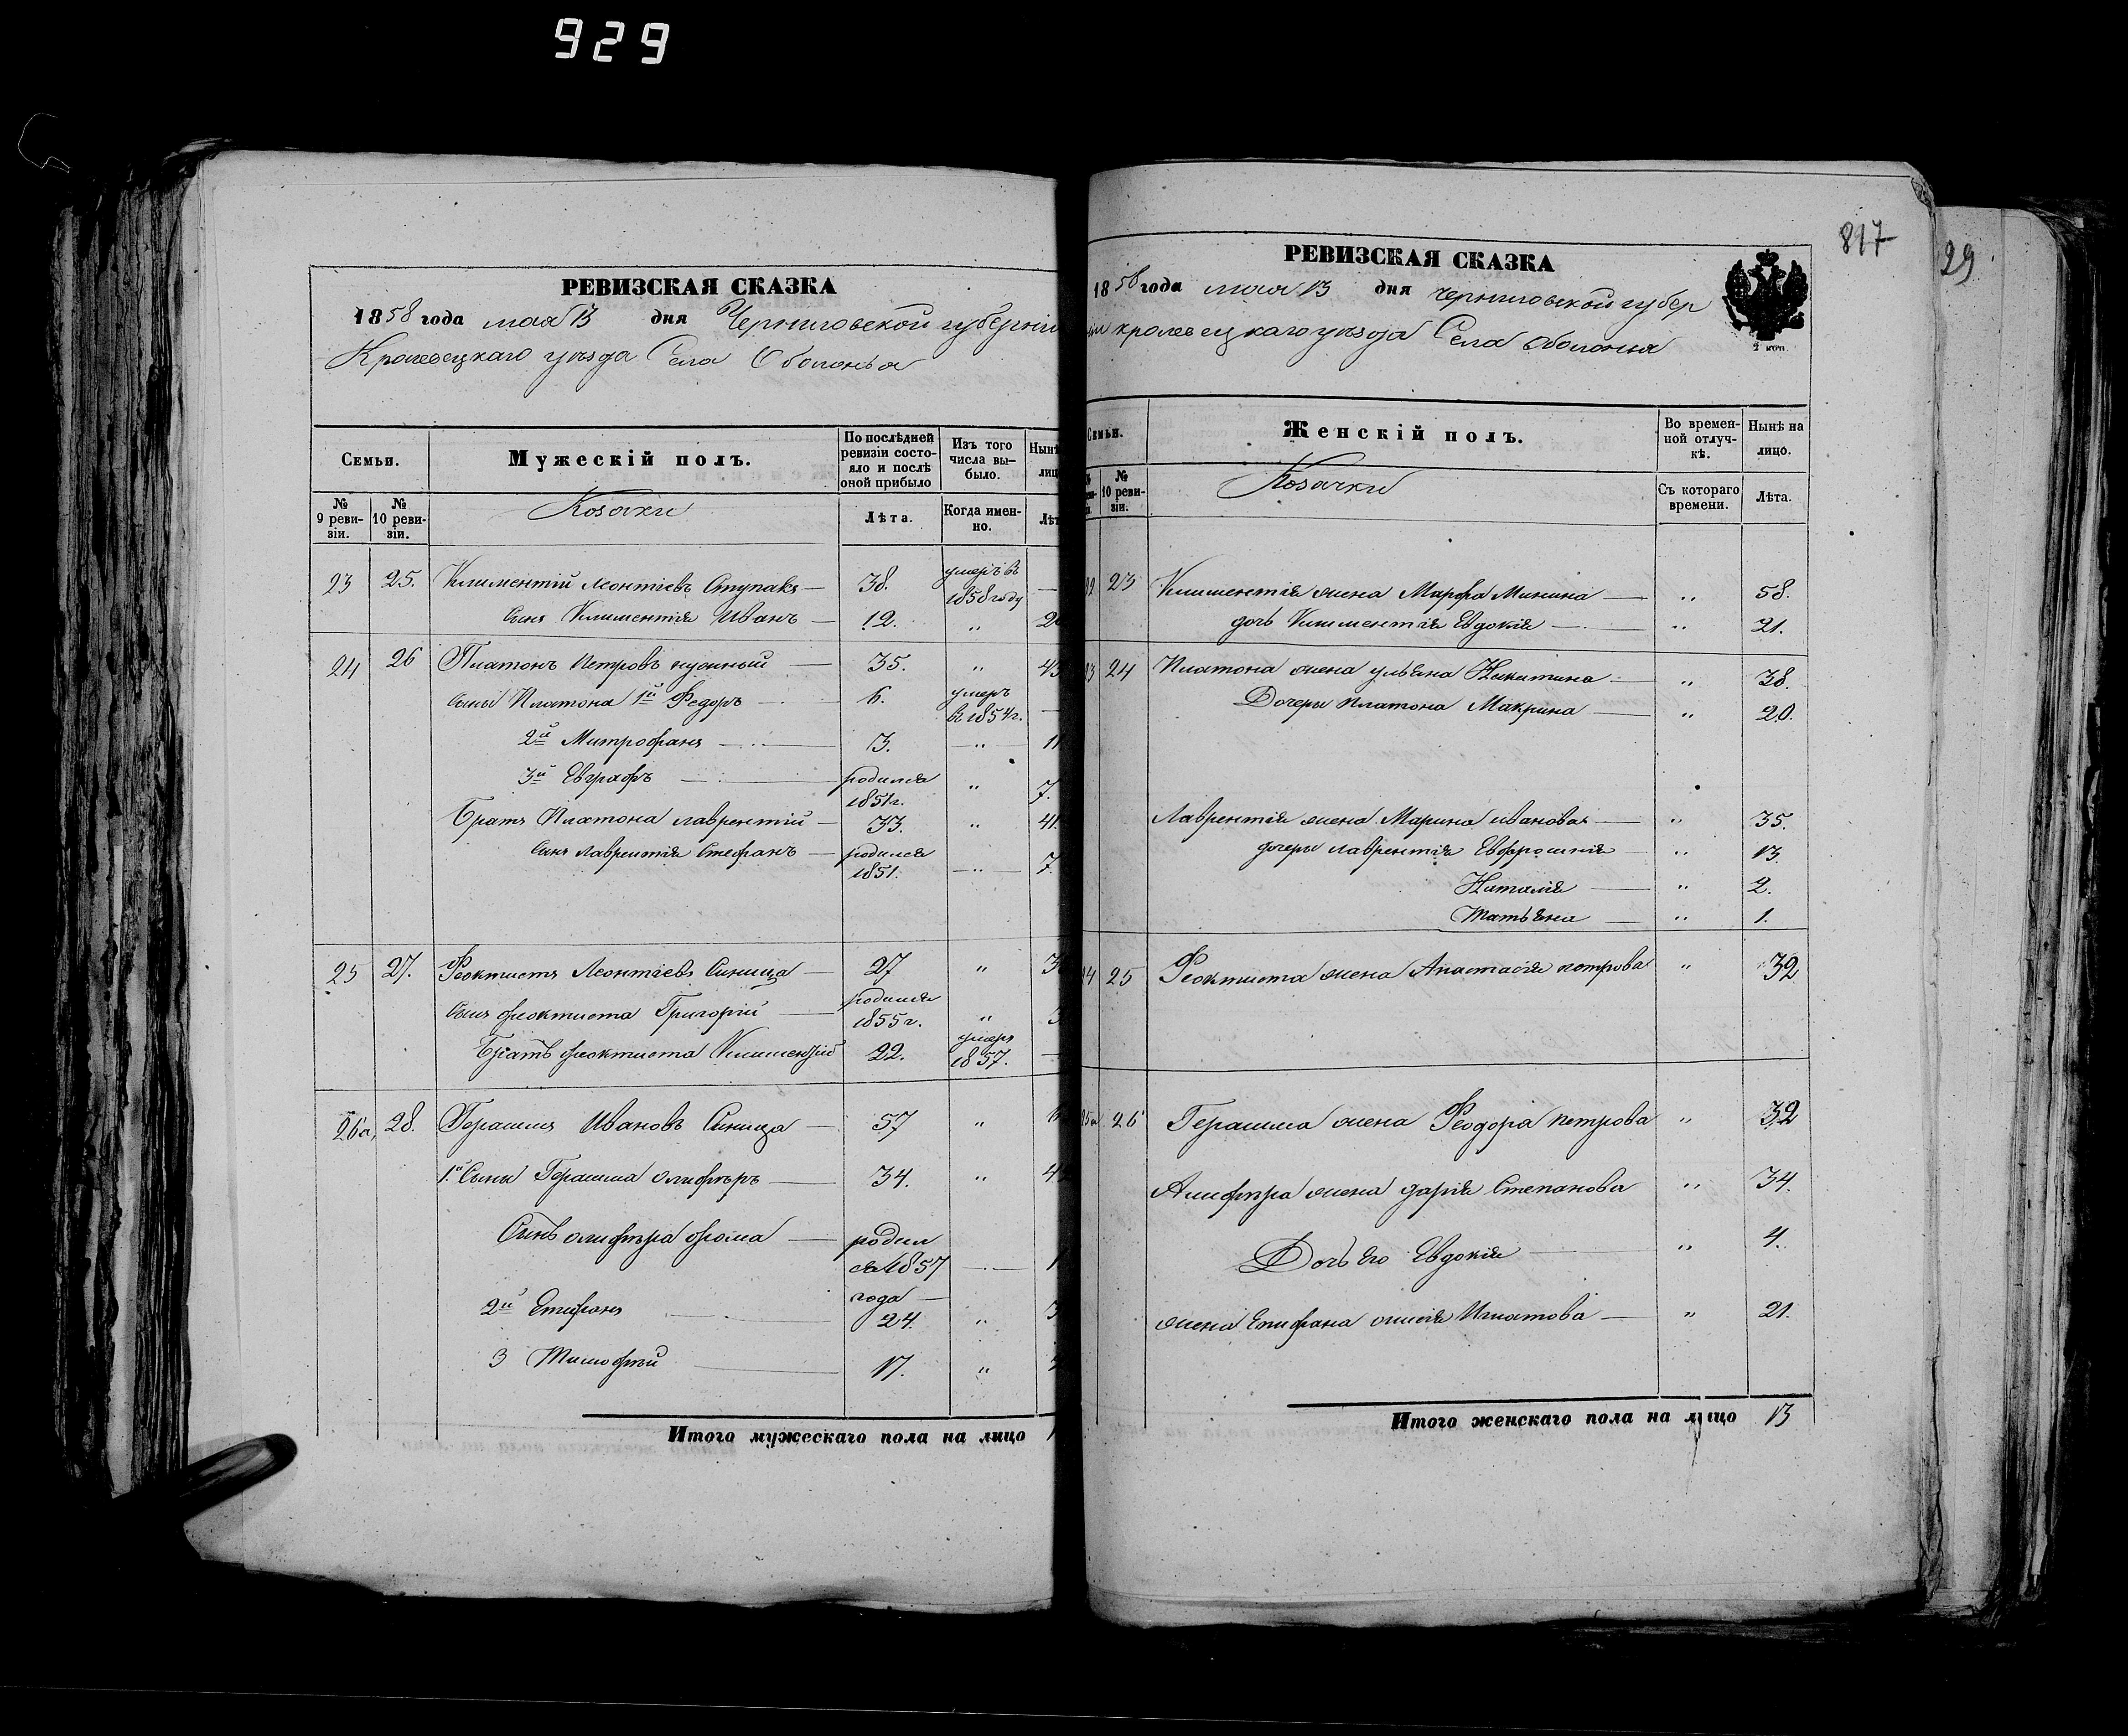 929
РЕВИЗСКАЯ СКАЗКА
1858 года мая 13 дня Черниговской губерніи
Кролевецкаго уѣзда Села Оболонья
Семьи. Мужескій полъ. По послѣдней ревизіи состояло и послѣ оной прибыло Изъ того числа вы-было. Нынѣ лиц
№ 9 реви-зіи. № 10 реви-зіи. Козаки Лѣта. Когда имен-но. Лѣт
23 25. Климентій Леонтіевъ Ступакъ — 38. умеръ въ 1858 году —
Сынъ Климентія Иванъ — 12. „ 2
24 26 Платонъ Петровъ — 35. „ 43
Сыны Платона 1й Федоръ — 6. умеръ въ 1854 г. —
2й Митрофанъ — 3. „ 11
3й Евграфъ — родился 1851 г. „ 7.
Братъ Платона Лаврентій — 33. „ 41.
Сынъ Лаврентія Стефанъ — родился 1851. „ 7.
25 27. Феоктистъ Леонтіевъ Синица — 27 „ 3
Сынъ Феоктиста Григорій — родился 1855 г. „ 3
Братъ Феоктиста Климентій 22. умеръ 1857. —
26а, 28. Герасимъ Ивановъ Синица — 57 „ 6
1й Сыны Герасима Олиферъ — 34. „ 4
Сынъ Олифера Фома — родил ся 1857 года — „ 1
2й Епифанъ 24. „ 3
3 Тимофей 17. „
Итого мужескаго пола на лицо 1
817
29
РЕВИЗСКАЯ СКАЗКА
1858 года мая 13 дня Черниговской губер
ніи Кролевецкаго уѣзда Села Оболонья
2 коп
Семьи. Женскій полъ. Во времен-ной отлуч-кѣ. Нынѣ на лицо.
№ 10 реви-зіи. Козачки Съ котораго времени. Лѣта.
22 23 Климентія жена Марфа Минина — „ 58.
дочь Климентія Евдокія — „ 21.
23 24 Платона жена Ульяна Никитина — „ 38.
Дочеры Платона Макрина — „ 20.
Лаврентія жена Марина Иванова — „ 35.
дочеры Лаврентія Евфросинія — „ 13.
Наталія — „ 2.
Татьяна — „ 1.
24 25 Феоктиста жена Анастасія Петрова „ 32
25а 26 Герасима жена Феодора Петрова „ 32
Алифера жена Дарія Степанова „ 34.
Дочь Его Евдокія — „ 4.
жена Епифана Игнатова — „ 21.
Итого женскаго пола на лицо 13